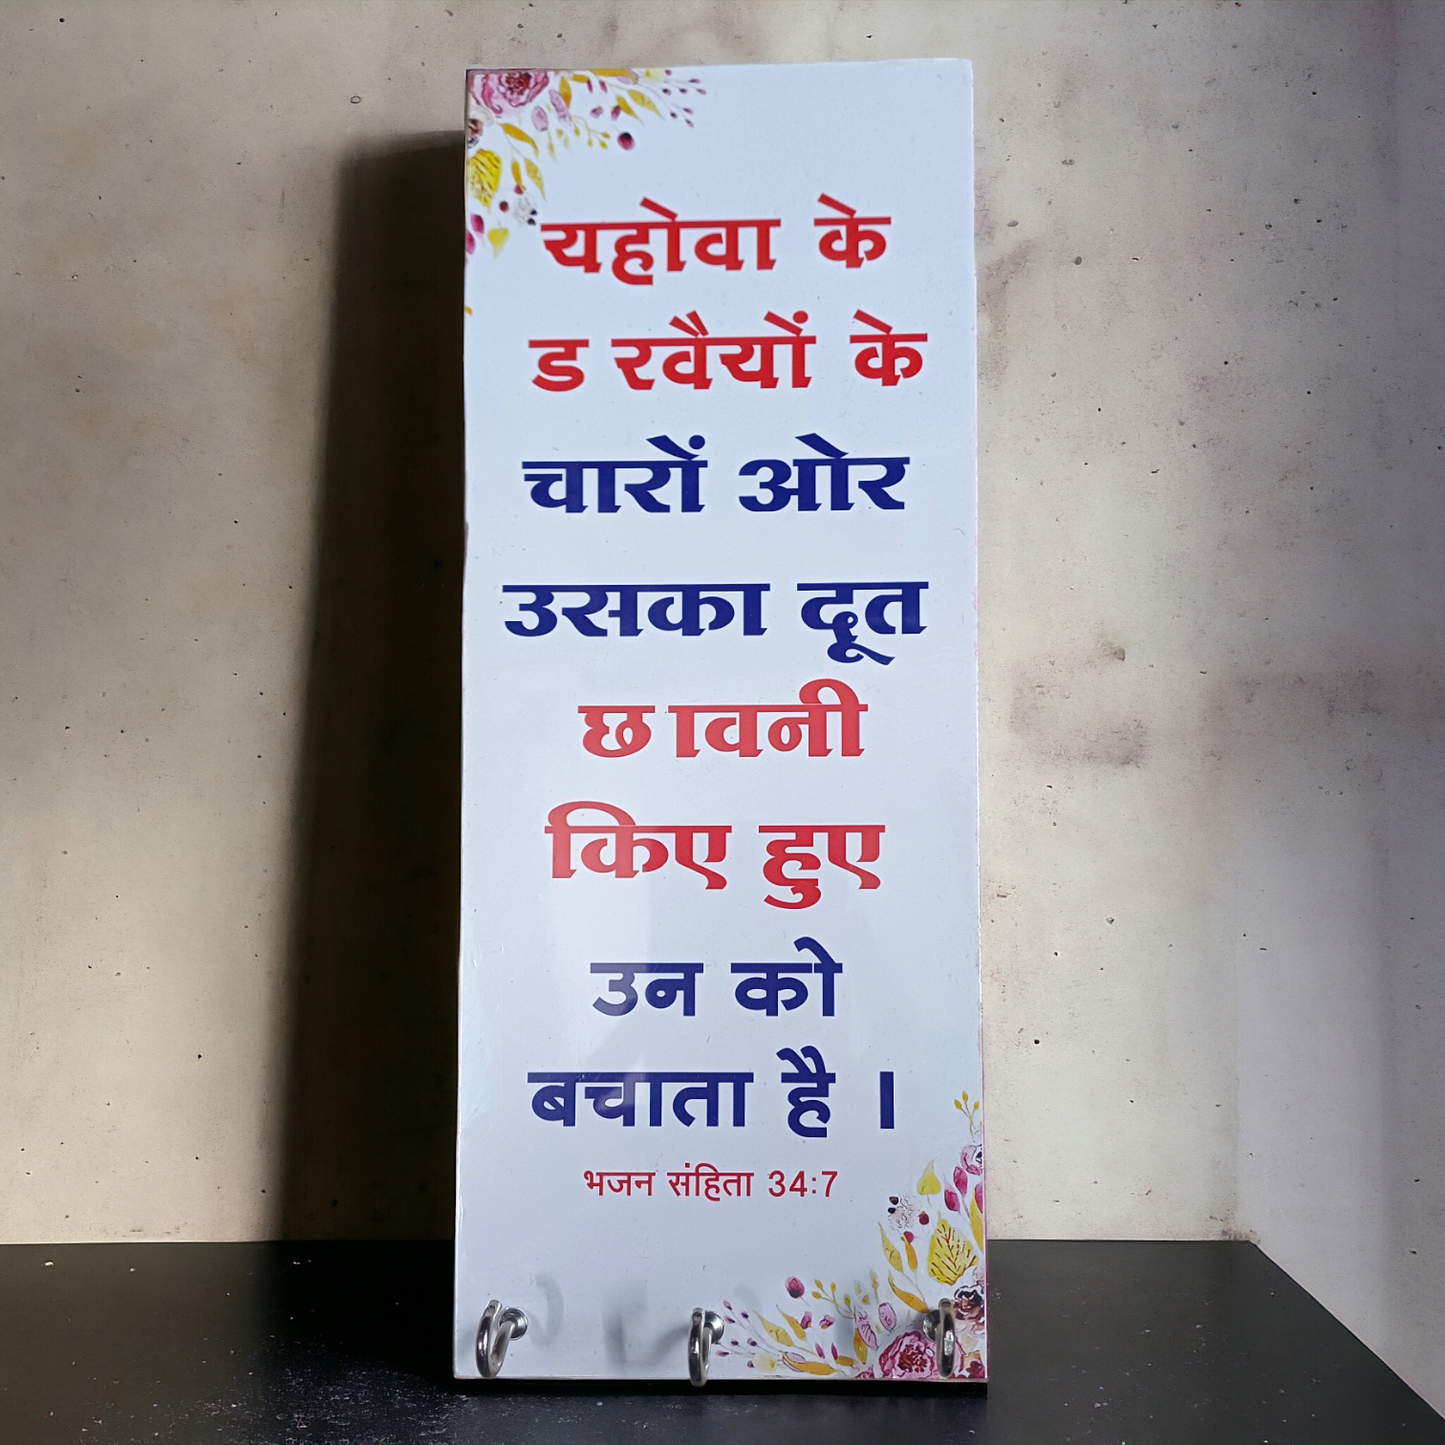 यहोवा के
ड रवैयों के
चारों ओर
उसका दूत
छ ावनी
किए हुए
उन को
बचाता है ।
भजन संहिता 34:7